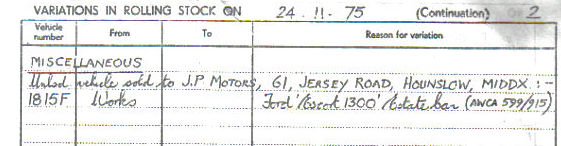 VARIATIONS IN ROLLING STOCK ON 24 . 11 . 75 (Continuation) 2
Vehicle number From To Reason for variation
MISCELLANEOUS
Unlsd vehicle sold to J.P MOTORS, 61, JERSEY ROAD, HOUNSLOW, MIDDX :-
1815F Works Ford 'Escort 1300' Estate Car (AWCA 599/915)